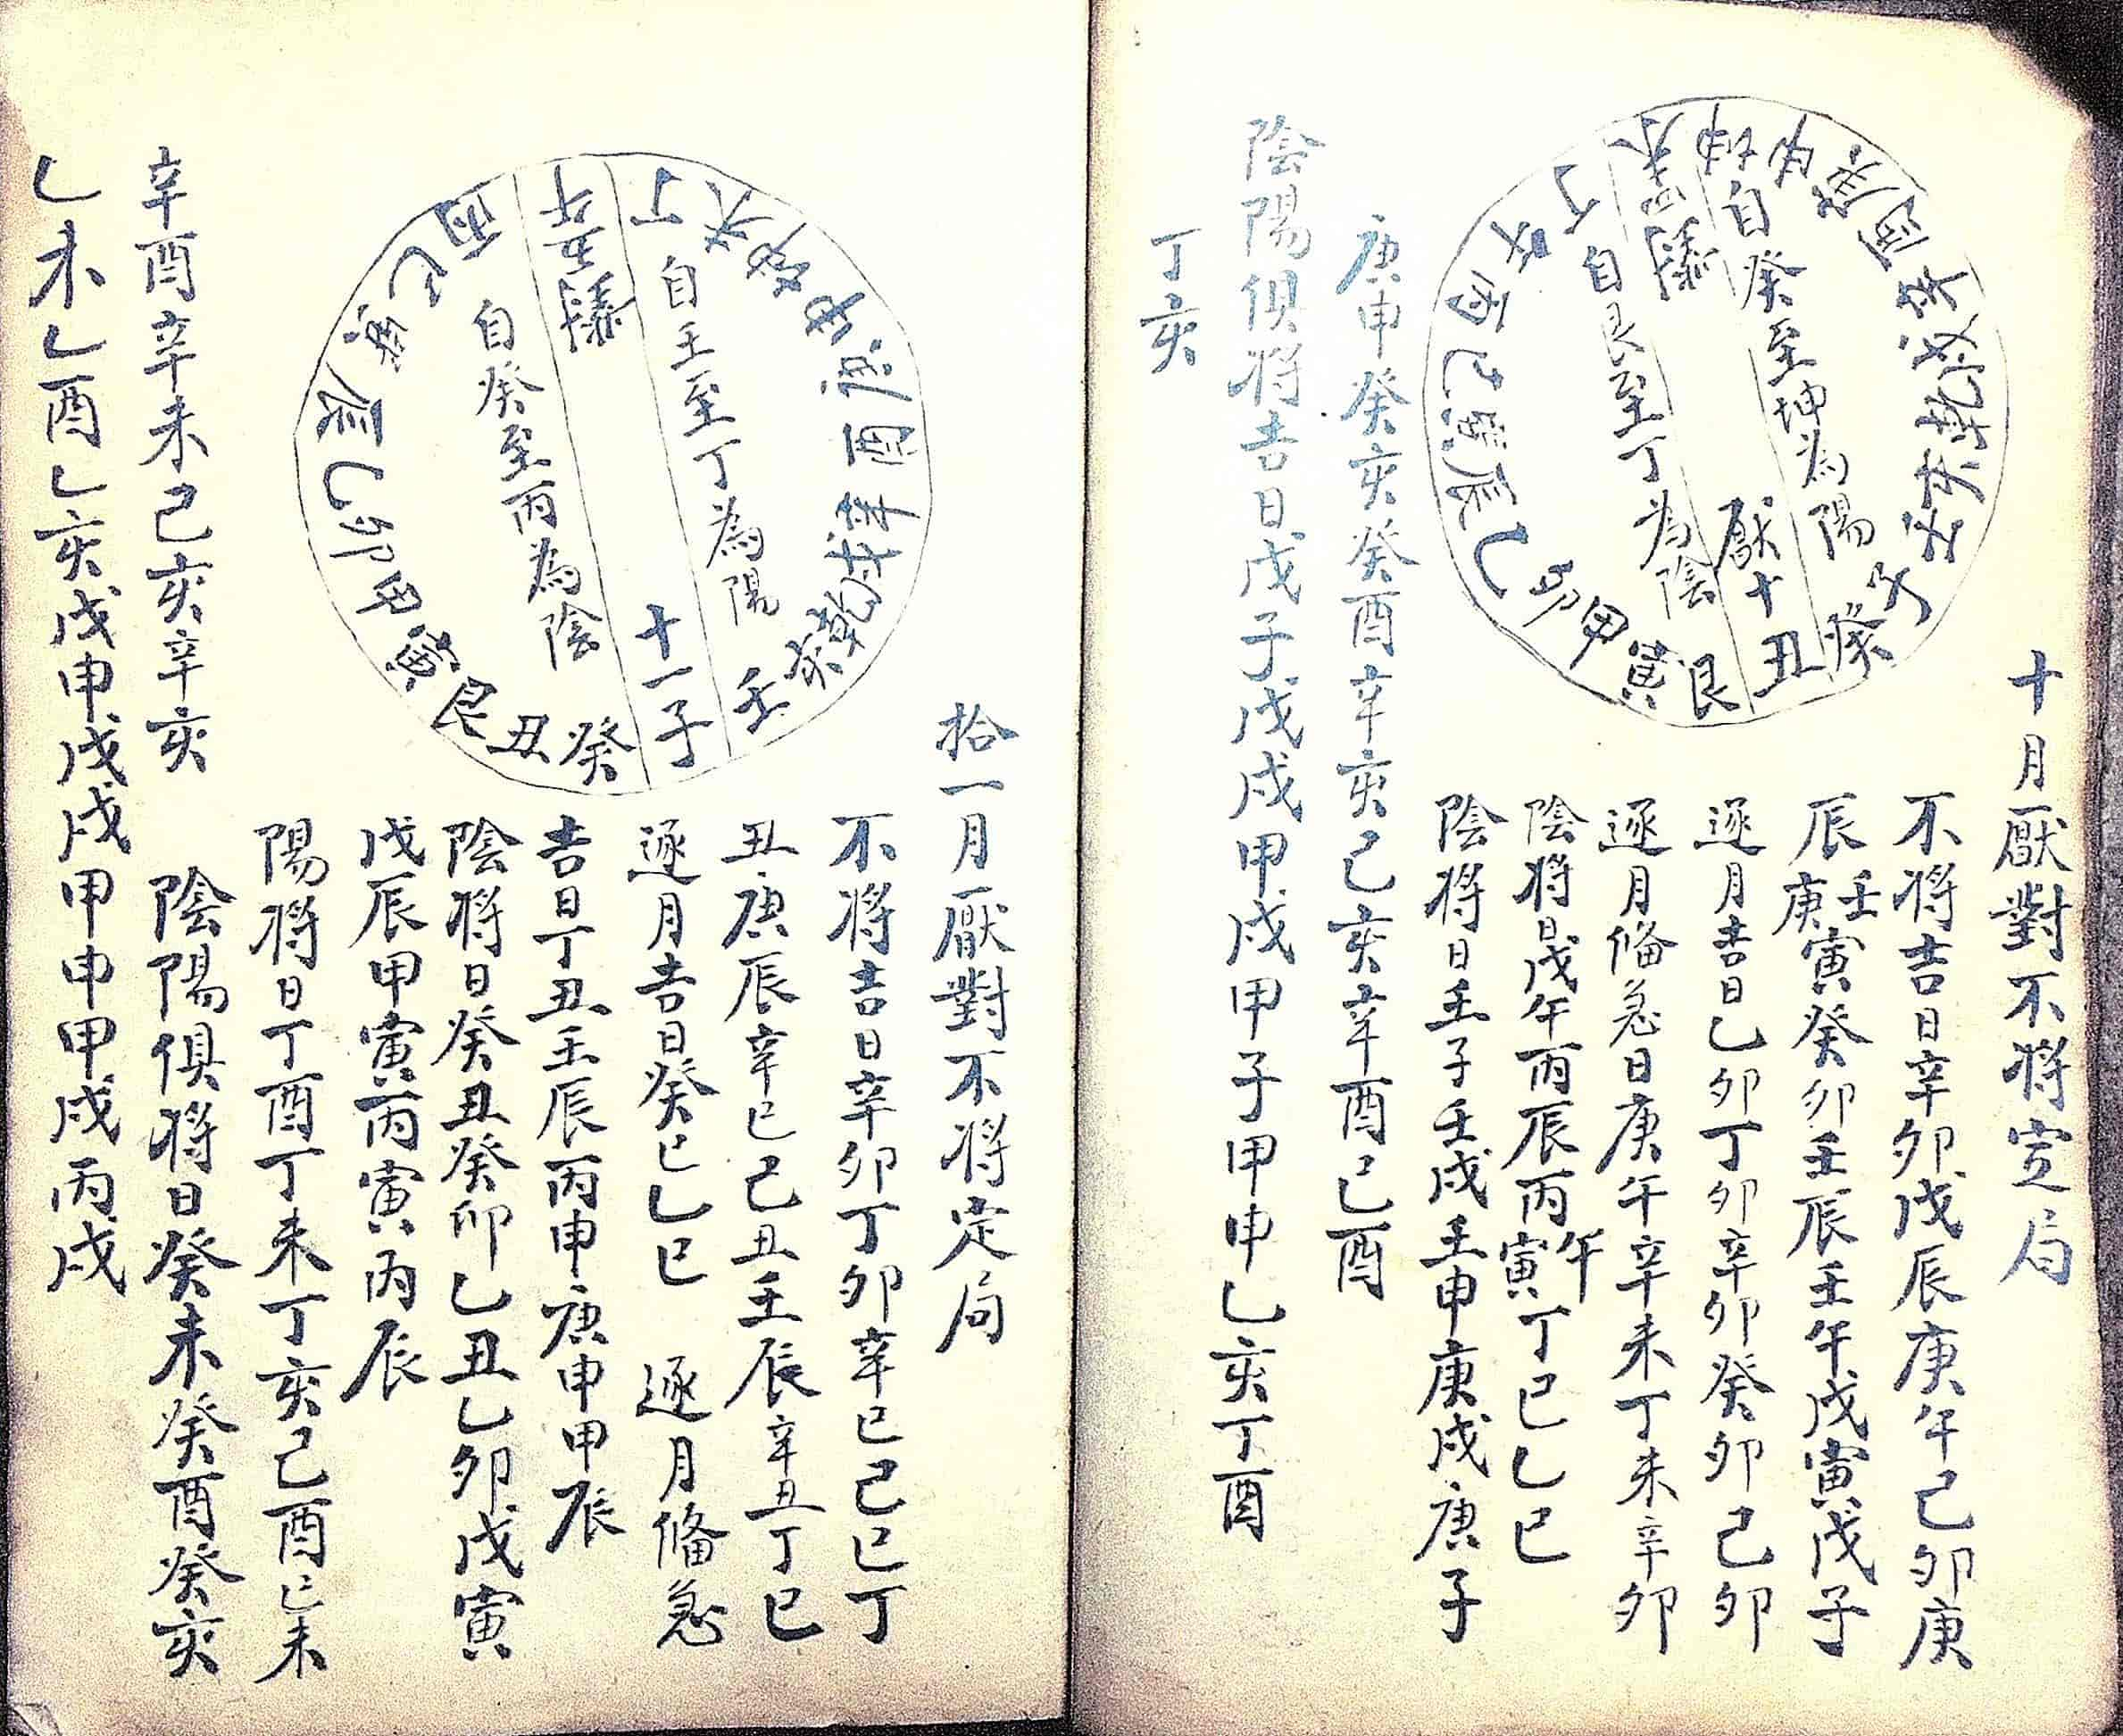 十月厭對不將定局
不將吉日辛卯戊辰庚午己卯庚
辰壬庚寅癸卯壬辰壬午戊寅戊子
逐月吉日乙卯丁卯辛卯癸卯己卯
逐月俻急日庚午辛未丁未辛卯
陰將日戊午丙辰丙午寅丁巳乙巳
陰將日壬子壬戌壬申庚戌庚子
庚申癸亥癸酉辛亥己亥辛酉己酉
陰陽俱將吉日戊子戊戌甲戌甲子甲申乙亥丁酉
丁亥
自癸至坤為陽
厭十丑
自艮至丁為陰
艮寅甲卯乙辰
拾一月厭對不將定局
不將吉日辛卯丁卯辛巳己巳丁
丑庚辰辛巳己丑壬辰辛丑丁巳
逐月吉日癸巳乙巳 逐月俻急
吉日丁丑壬辰丙申庚申甲辰
陰將日癸丑癸卯乙丑乙卯戊寅
戊辰甲寅丙寅丙辰
陽將日丁酉丁未丁亥己酉己未
辛酉辛未己亥辛亥 陰陽俱將日癸未癸酉癸亥
乙未乙酉乙亥戊申戊戌甲申甲戌丙戌
自壬至丁為陽
十一子
自癸至丙為陰
癸丑艮寅甲卯乙辰巽巳丙